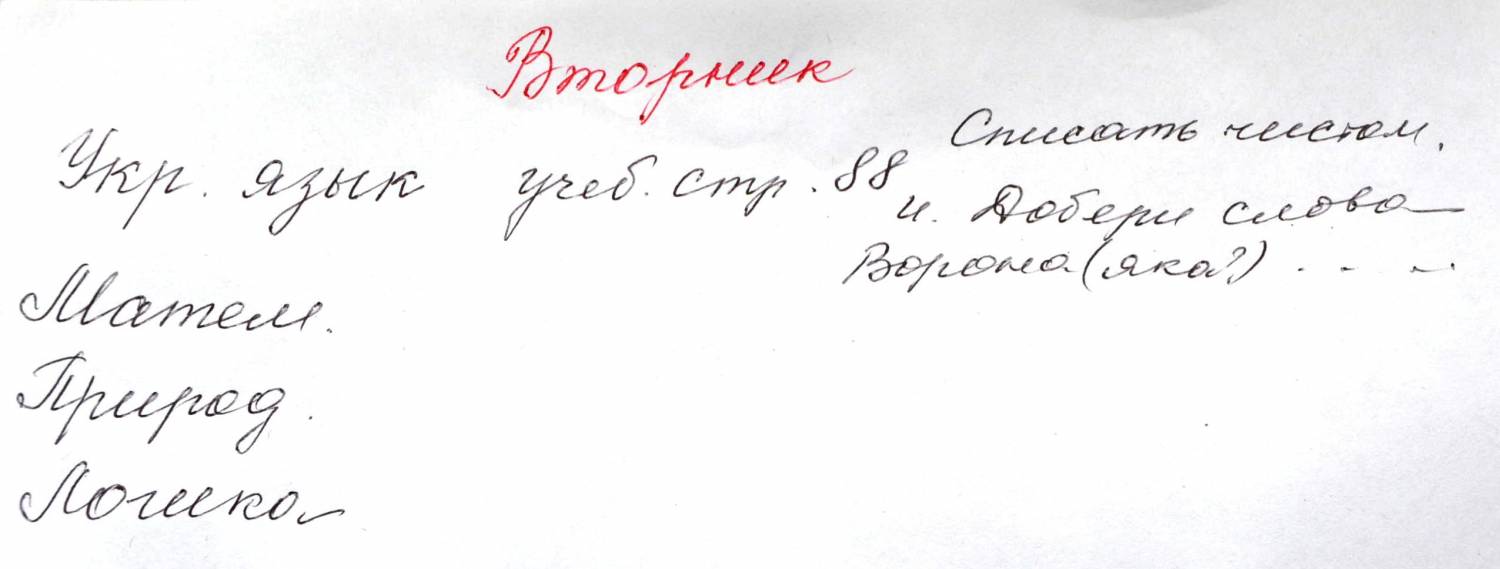 Вторник
Укр. язык учеб. стр. 88 Списать чистом.
и. Добери слова
Ворона (яка?) . . . .
Матем.
Природ.
Логика